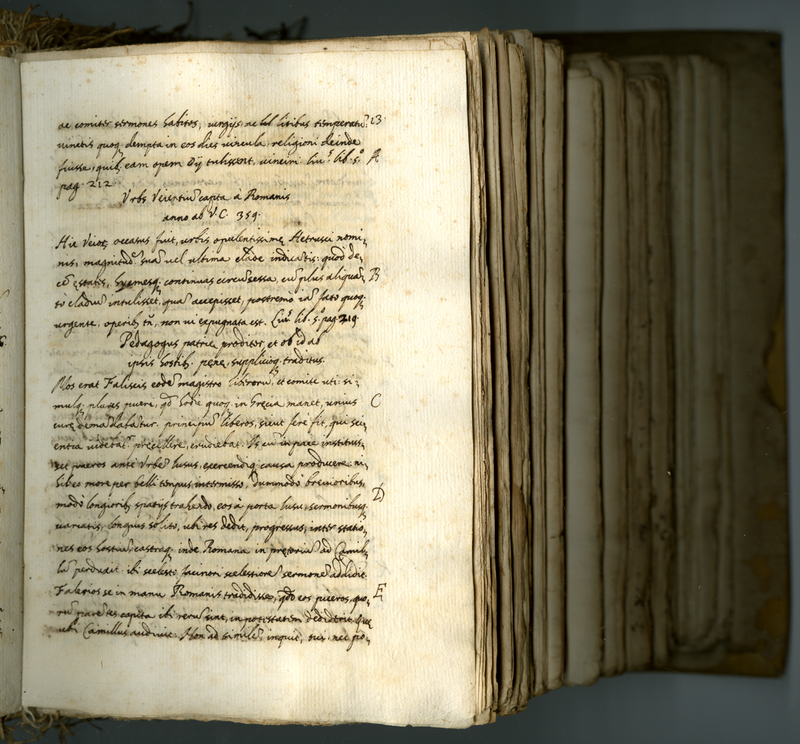 ac comiter sermones habitos, iurgijs ac lit litibus temperatũ. 23
vinctis quoq dempta in eos dies vincula, religioni deinde
fuisse, quib, eam opem Dij tulissent, vinciri. Liu.s lib. 5.o A
pag. 212.
Vrbs Veientiũ capta à Romanis
anno ab V.C. 359.
Hic Veior, occasus fuit, urbis opulentissimę Hetrusci nomi,
nis, magnitud.em suã vel ultima clade indicãtis: quod de,
cẽ ęstatis, hyemesq, continuas circũsessa, cũ plus aliquã, B
to cladiũ intulisset, quã accepisset, postremo iã fato quoq,
urgente, operib, tñ, non vi expugnata est. Liu.s lib. 5.o pag. 219.
Pędagogus patrię proditor, et ob id ab
ipsis hostib, penę, supplicioq, traditus.
Mos erat Faliscis eodẽ magistro liberorũ, et comite uti: si,
mulq, plures pueri, qđ hodie quoq, in Gręcia manet, unius C
curę demãdabãtur. principũ liberos, sicut ferè fit, qui sci,
entia videbat.r pręcellere, erudiebat. Is cũ in pace institus,
set pueros ante Vrbẽ lusus, exercendiq, causa producere: ni,
hil eo more per belli tempus intermisso, dummodo brevioribus,
modò longiorib, spatijs trahendo, eos à porta lusu, sermonibusq, D
variatis, longius solito, ubi res dedit, progressus, inter statio,
nes eos hostiũ, castraq, inde Romana in pretoriũ ad Camil,
lũ perduxit. ibi scelesto facinori scelestiorẽ sermonẽ addidit.
Falerios se in manu Romanis tradidisse, qđo eos pueros, quo, E
rũ parẽtes capita ibi rerũ sint, in potestatem dediderit. Quę
ubi Camillus audivit. Non ad similẽ, inquit, tui, nec po,